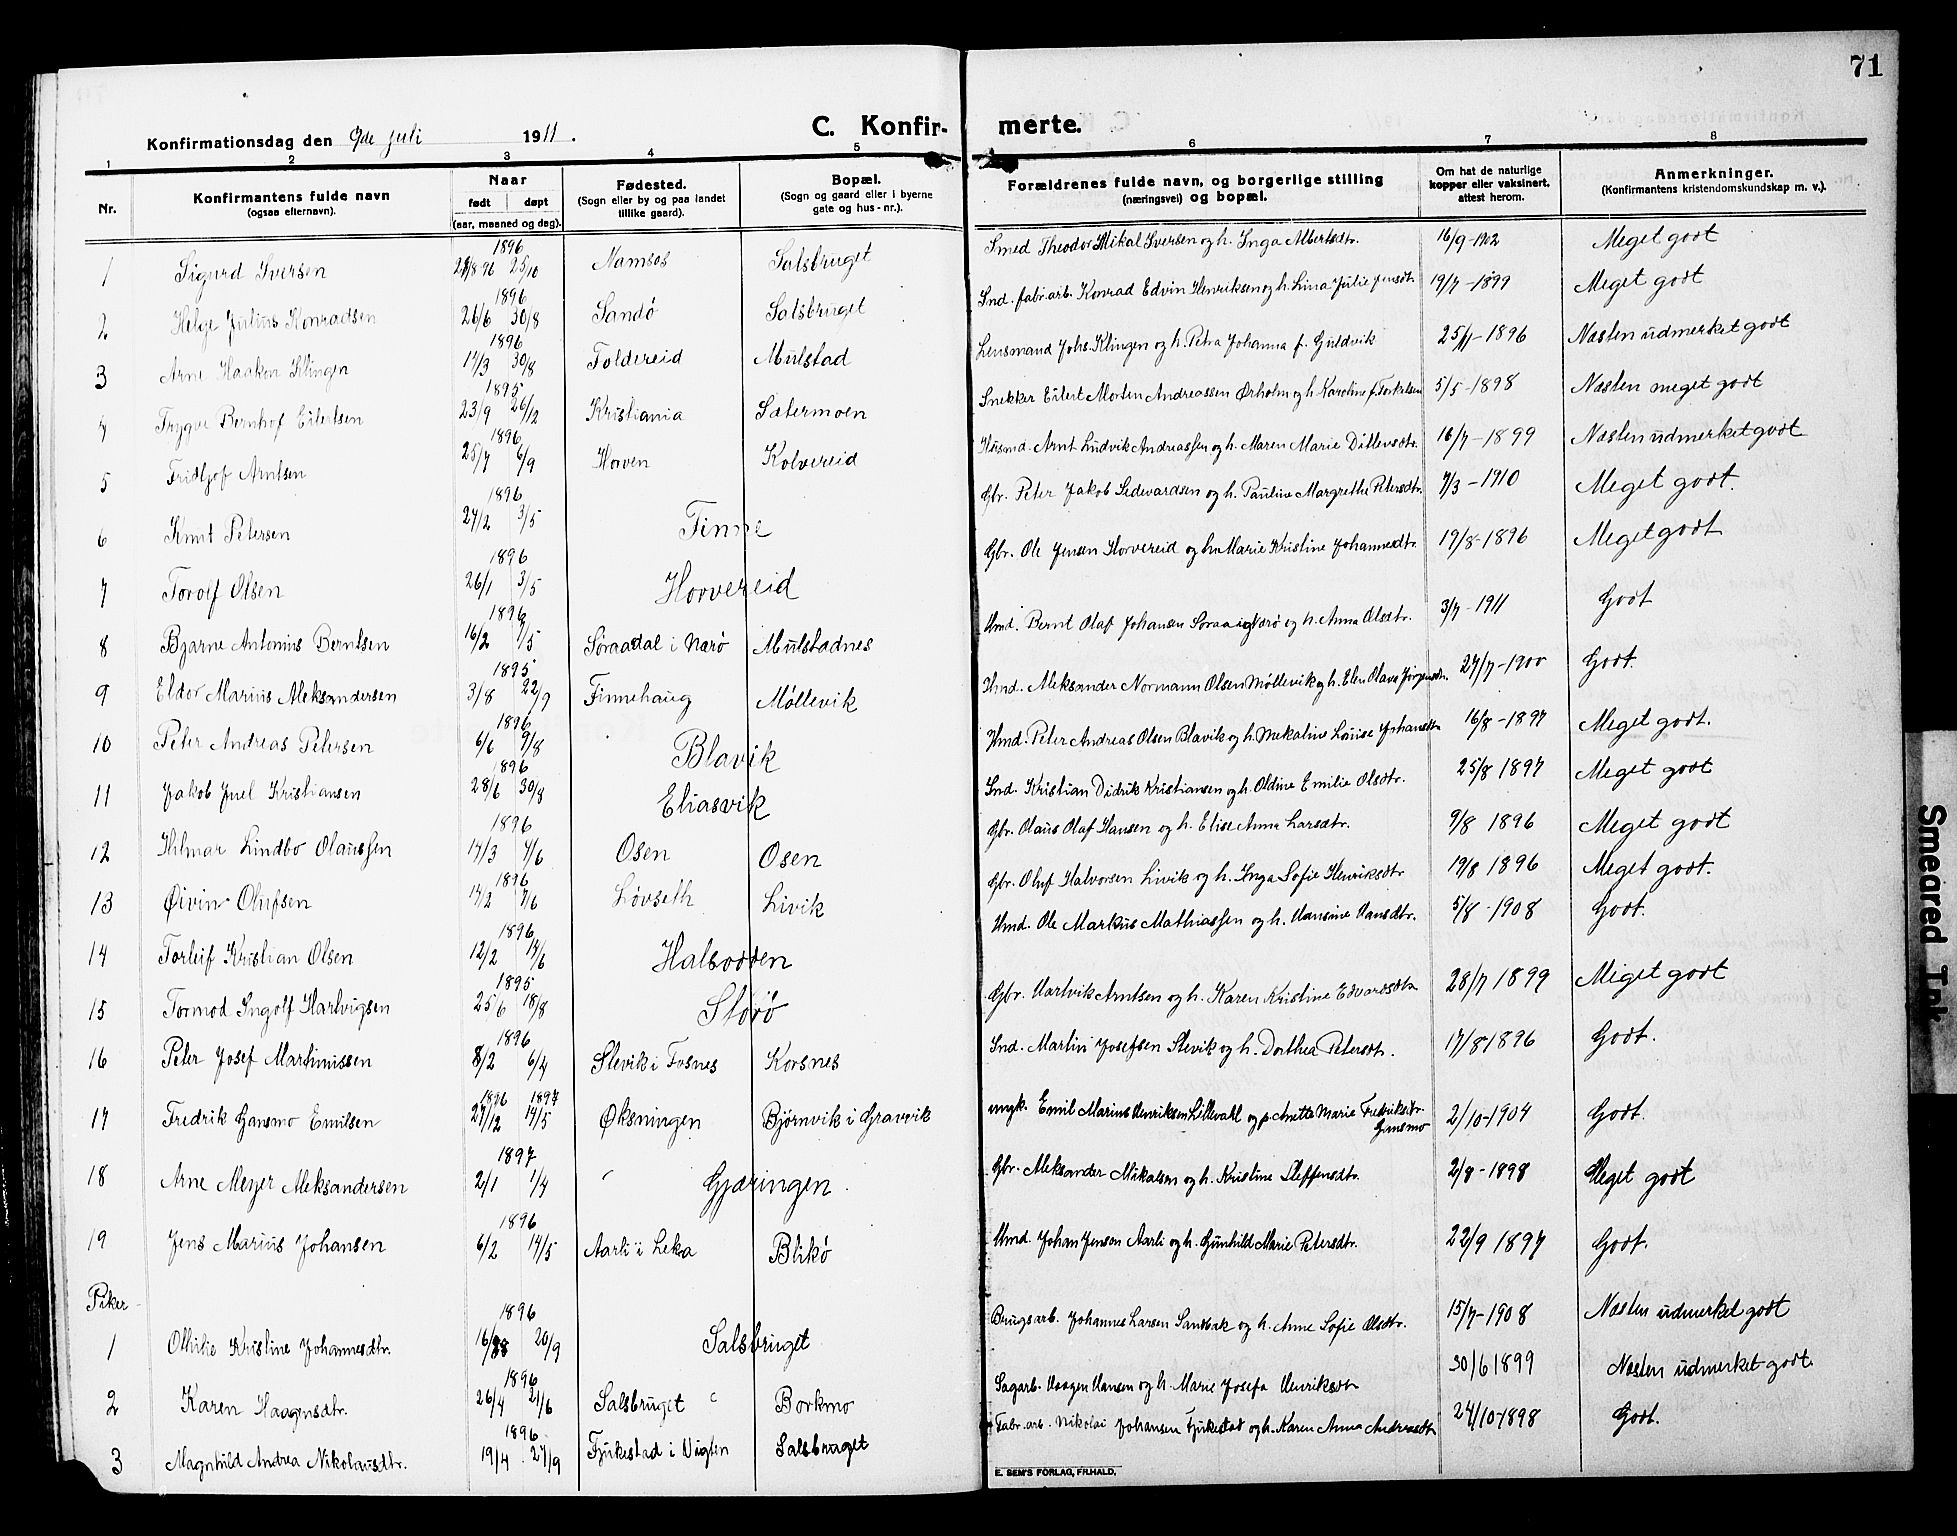 71
Konfirmationsdag den 9de juli 1911.
C. Konfirmerte.
1 2 3 4 5 6 7 8
Nr. | Konfirmantens fulde navn (ogsaa efternavn). | Naar født døpt (aar, maaned og dag). | Fødested. (Sogn eller by og paa landet tillike gaard). | Bopæl. (Sogn og gaard eller i byerne gate og hus-nr.). | Forældrenes fulde navn, og borgerlige stilling (næringsvei) og bopæl. | Om hat de naturlige kopper eller vaksinert, attest herom. | Anmerkninger. (Konfirmantens kristendomskundskap m. v.).
1 Sigurd Iversen 1896 28/8 96 25/10 Namsos Salsbruget Smed Theodor Mikal Iversen og h. Inga Albertsdtr. 16/9-1902 Meget godt
2 Helge Julius Konradsen 1896 26/6 30/8 Sandö Salsbruget Ind. fabr.arb. Konrad Edvin Henriksen og h. Lina Julie Jensdtr. 19/7-1899 Meget godt
3 Arne Haakon Klingen 1896 17/3 30/8 Foldereid Mulstad Lensmand Johs. Klingen og h. Petra Johanna f. Guldvik 25/11-1896 Næsten udmerket godt
4 Trygve Bernhof Eilertsen 1895 23/9 26/12 Kristiania Sætermoen Snekker Eilert Morten Andreassen Ørholm og h. Karoline f. Torkelsen 5/5-1898 Næsten meget godt
5 Fridtjof Arntsen 1896 25/7 6/9 Horven Kolvereid Husmd. Arnt Ludvik Andreassen og h. Maren Marie Ditlevsdtr. 16/7-1899 Næsten udmerket godt
6 Knut Petersen 1896 27/2 3/5 Finne Gbr. Peter Jakob Sedvardsen og h. Pauline Margrethe Petersdtr. 7/3-1910 Meget godt.
7 Torolf Olsen 1896 26/1 3/5 Horvereid Gbr. Ole Jensen Horvereid og h. Marie Kristine Johannesdtr. 19/8-1896 Meget godt
8 Bjarne Antonius Berntsen 1896 16/2 1/5 Søraadal i Nærö Mulstadnes Hmd. Bernt Olaf Johansen Søraa i Nærö og h. Anna Olsdtr. 3/7-1911 Godt
9 Eldor Marius Aleksandersen 1895 3/8 22/9 Finnehaug Møllevik Hmd. Aleksander Normann Olsen Møllevik og h. Elen Olava Jörgensdtr. 27/7-1900 Godt.
10 Peter Andreas Petersen 1896 6/6 9/8 Blavik Hmd. Peter Andreas Olsen Blavik og h. Mekaline Louise Johansdtr. 16/8-1897 Meget godt.
11 Jakob Juel Kristiansen 1896 28/6 30/8 Eliasvik Ind. Kristian Didrik Kristiansen og h. Oldine Emilie Olsdtr. 25/8 1897 Meget godt
12 Hilmar Lindbo Olaussen 1896 17/3 7/6 Osen Osen Gbr. Olaus Olaf Hansen og h. Elise Anna Larsdtr. 9/8 1896 Meget godt
13 Øivin Olufsen 1896 17/2 7/6 Løvseth Livik Gbr. Oluf Halvorsen Livik og h. Inga Sofie Henriksdtr. 19/8 1896 Meget godt.
14 Torleif Kristian Olsen 1896 12/2 14/6 Halsodden Hmd. Ole Markus Mathiassen og h. Hansine Hansdtr. 5/8-1908 Godt.
15 Tormod Ingolf Hartvigsen 1895 25/6 18/8 Storö Gbr. Hartvik Arntsen og h. Karen Kristine Edvardsdtr. 28/7 1899 Meget godt
16 Peter Josef Martinussen 1896 8/2 6/4 Slevik i Fosnes Korsnes Ind. Martin Josefsen Slevik og h. Dorthea Petersdtr. 17/8 1896 Godt.
17 Fredrik Gansmo Emilsen 1896 27/12 1897 17/5 Øksningen Bjørnvik i Gravvik ungk. Emil Marius Henriksen Lillevall og p. Anette Marie Fredriksdtr. Gansmo 2/10-1904 Godt.
18 Arne Meyer Aleksandersen 1897 2/1 1/4 Gjæringen. Gbr. Aleksander Mikalsen og h. Kristine Steffensdtr. 2/8-1898 Meget godt
19 Jens Marius Johansen 1896 6/2 14/5 Aarli i Leka Blikö Hmd. Johan Jenson Aarli og h. Gunhild Marie Petersdtr. 22/9 1897 Godt.
Piker
1 Othilie Kristine Johannesdtr. 1896 20/9 Salsbruget Brugsarb. Johannes Larsen Sandbak og h. Anne Sofie Olsdtr. 15/7-1908 Næsten udmerket godt
2 Karen Haagensdtr. 1896 26/4 21/6 Salsbruget Borkmo Sagarb. Haagen Hansen og h. Marie Josefa Henriksdtr 30/6 1899 Næsten udmerket godt.
3 Magnhild Andrea Nikolausdtr. 1896 19/4 27/9 Fjukestad i Vigten Salsbruget Fabr.arb. Nikolai Johansen Fjukestad og h. Karen Anna Andreasdtr 24/10-1898 Godt.
E. SEM'S FORLAG, FR.HALD.
Smeared Ink